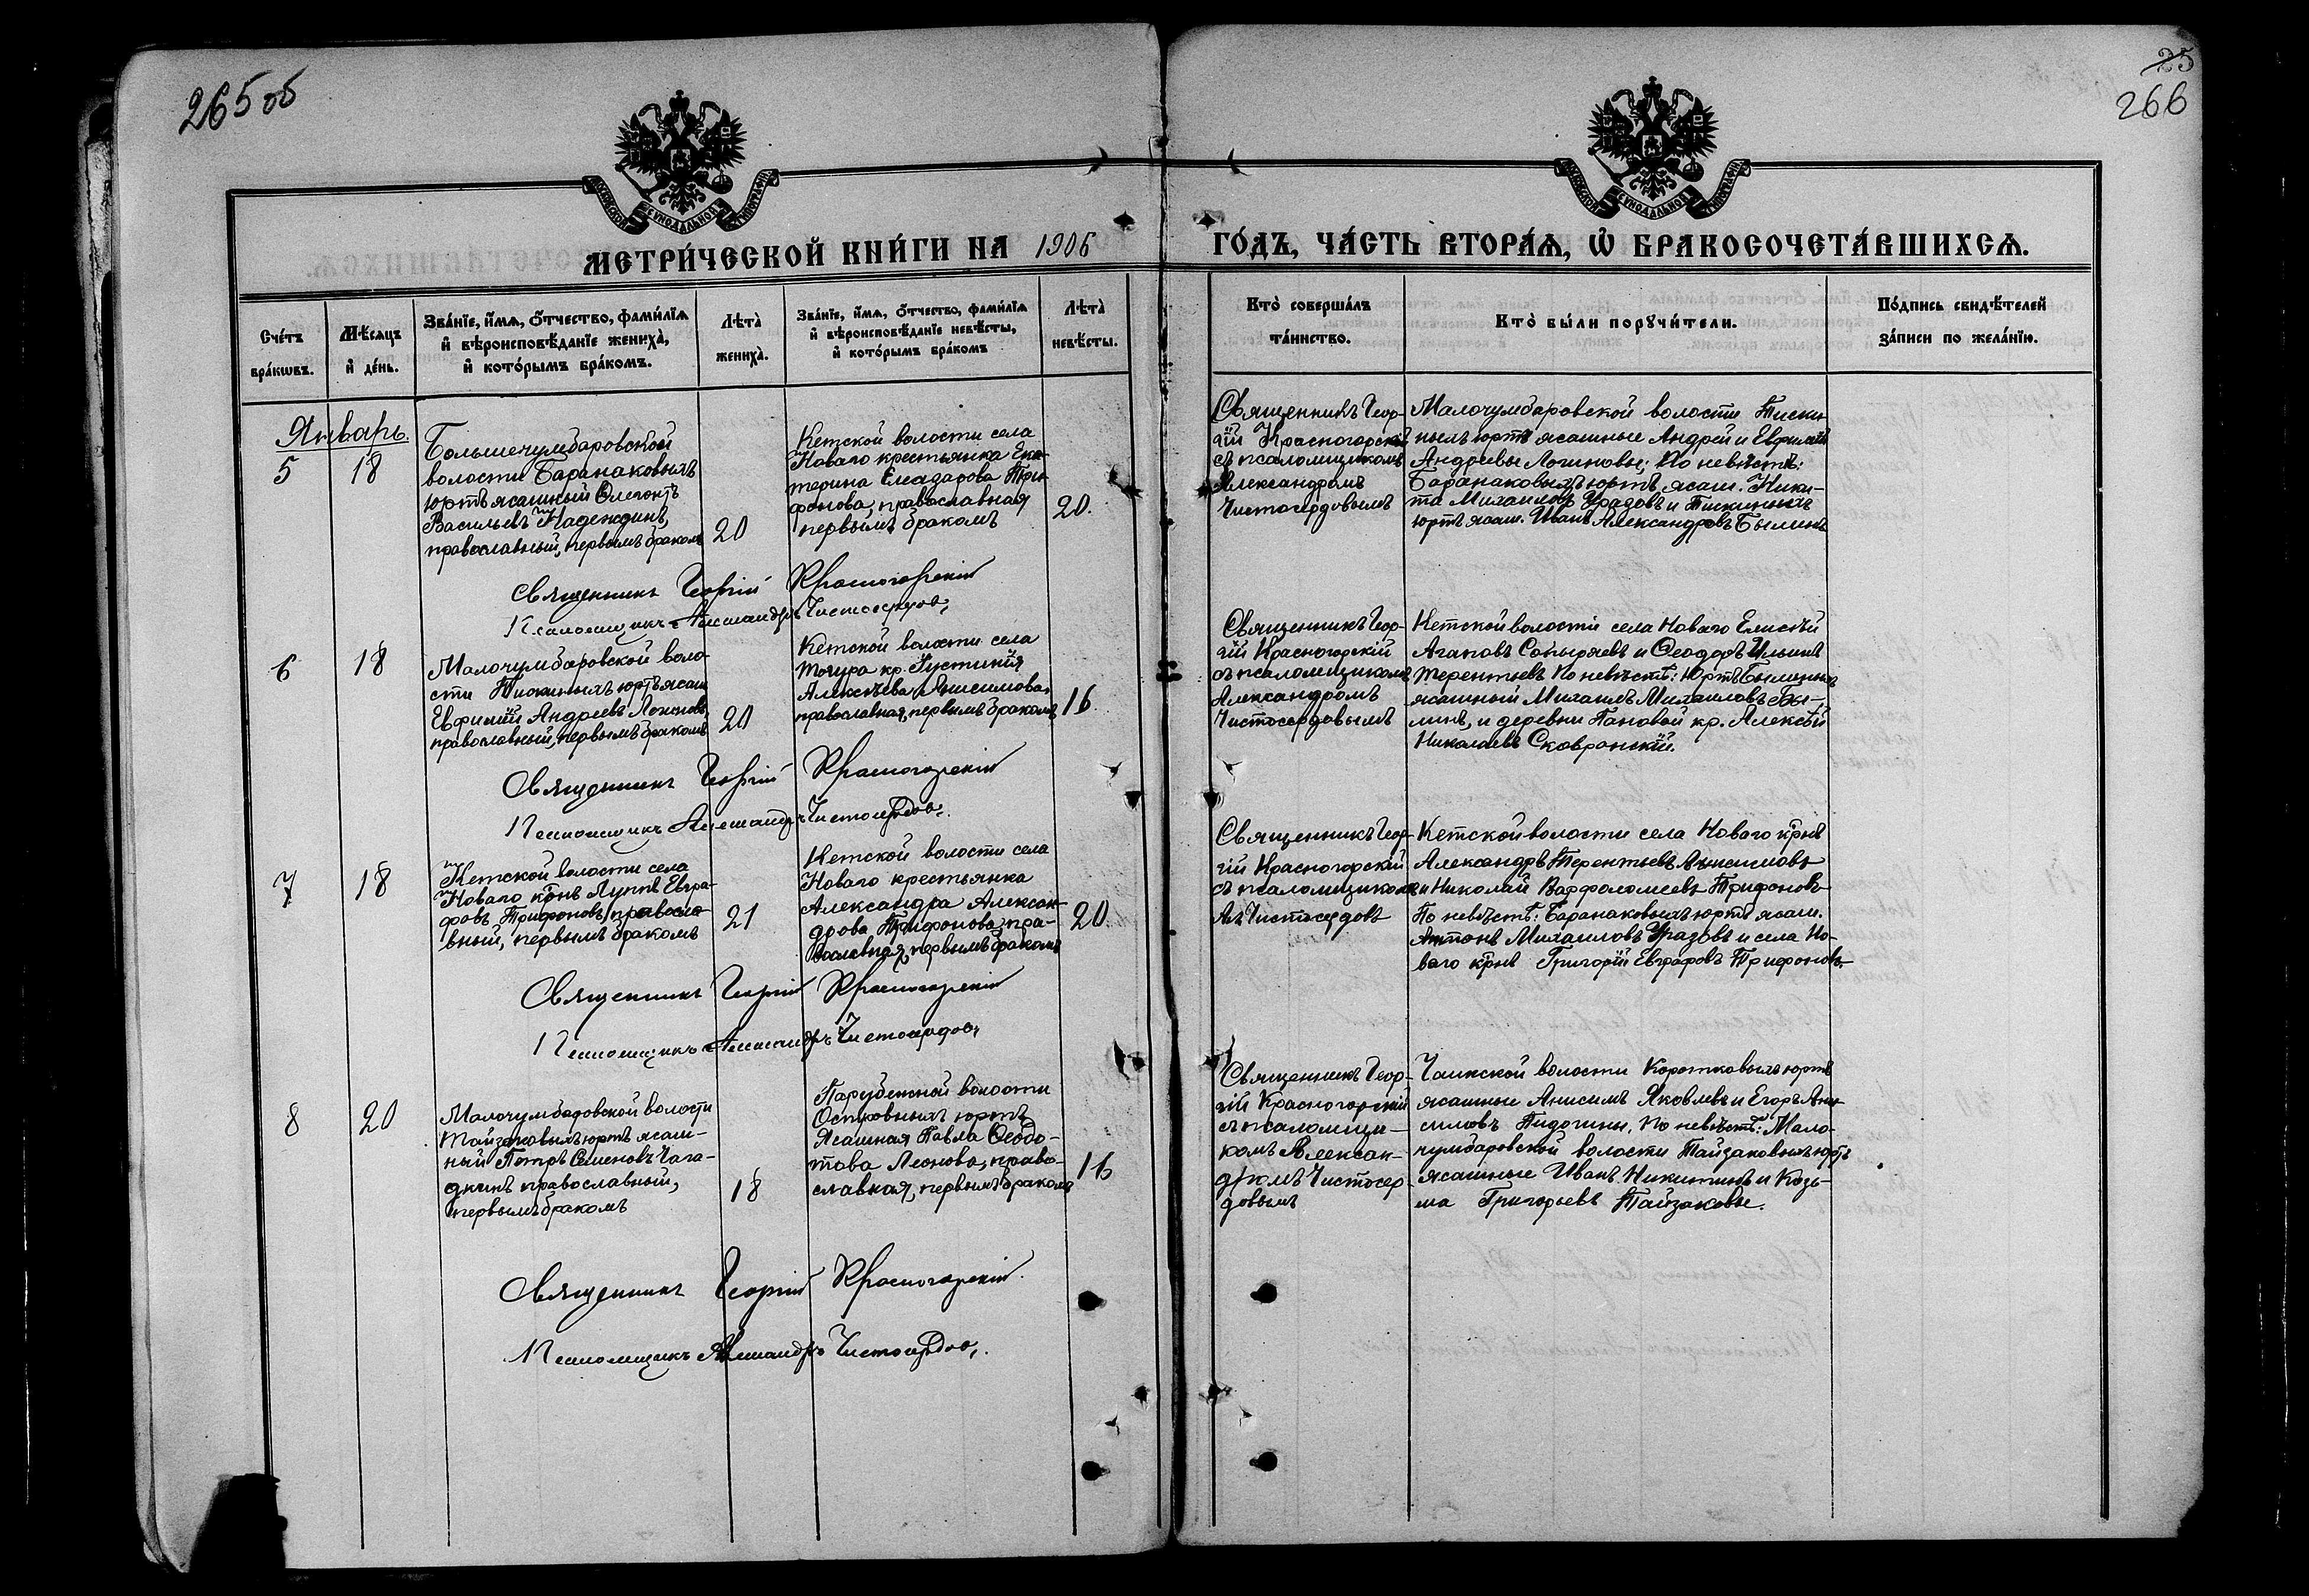 265 об
25
266
МОСКОВСКОЙ СѴНОДАЛЬНОЙ ТИПОГРАФІИ
МОСКОВСКОЙ СѴНОДАЛЬНОЙ ТИПОГРАФІИ
МЕТРИ́ЧЕСКОЙ КНИ́ГИ НА 1906
ГО́ДЪ, ЧА́СТЬ ВТОРА́Ѧ, Ѡ҆ БРАКОСОЧЕТА́ВШИХСѦ.
Сче́тъ
бра́кѡвъ.
Мѣ́сѧцъ
и҆ де́нь.
Зва́нїе, и҆́мѧ, ѻ҆́тчество, фами́лїѧ
и҆ вѣроисповѣ́данїе жениха̀,
и҆ кото́рымъ бра́комъ.
Лѣта̀
жениха̀.
Зва́нїе, и҆́мѧ, ѻ҆́тчество, фами́лїѧ
и҆ вѣроисповѣ́данїе невѣ́сты,
и҆ кото́рымъ бра́комъ
Лѣта̀
невѣ́сты.
Кто̀ соверша́лъ
та́инство.
Кто̀ бы́ли порꙋчи́тели.
По́дпись свидѣ́телей
за́писи по жела́нїю.
Январь.
5
18
Большечумбаровской
волости Баранаковыхъ
юртъ ясашный
Васильевъ Надеждинъ,
православный, первымъ бракомъ
20
Кетской волости села
Новаго крестьянка Ека-
терина Елеазарова Три-
фонова, православная
первымъ бракомъ
20.
Священникъ Геор-
гій Красногорскій
съ псаломщикомъ
Александромъ
Чистосердовымъ
Малочумбаровской волости Писки-
ныхъ юртъ ясашные Андрей и Евфимій
Андреевы Логиновы; По невѣстѣ:
Баранаковыхъ юртъ ясаш. Ники-
та Михаиловъ Уразовъ и Пискиныхъ
юртъ ясаш. Иванъ Александровъ Былинъ
Священникъ Георгій Красногорскій
Псаломщикъ Александръ Чистосердовъ
6
18
Малочумбаровской воло-
сти Пискиныхъ юртъ ясаш
Евфимій Андреевъ Логиновъ,
православный, первымъ бракомъ
20
Кетской волости села
Тогура кр. Іустинія
Алексѣева Анисимова,
православная, первымъ бракомъ
16
Священникъ Геор-
гій Красногорскій
съ псаломщикомъ
Александромъ
Чистосердовымъ
Кетской волости села Новаго Елисѣй
Агаповъ Сопыряевъ и Ѳеодоръ Ильинъ
Терентьевъ По невѣстѣ: Юртъ Былиныхъ
ясашный Михаилъ Михаиловъ Бы-
линъ, и деревни Пановой кр. Алексѣй
Николаевъ Сковронскій.
Священникъ Георгій Красногорскій
Псаломщикъ Александръ Чистосердовъ
7
18
Кетской волости села
Новаго крнъ Луппъ Евгра-
фовъ Трифоновъ, правосла-
вный, первымъ бракомъ
21
Кетской волости села
Новаго крестьянка
Александра Алексан-
дрова Трифонова, пра-
вославная, первымъ бракомъ
20.
Священникъ Геор-
гій Красногорскій
съ псаломщикомъ
Ал. Чистосердовъ
Кетской волости села Новаго крнѣ
Александръ Терентьевъ Анисимовъ
и Николай Варфоломеевъ Трифоновъ
По невѣстѣ: Баранаковыхъ юртъ ясаш.
Антонъ Михаиловъ Уразовъ и села Но-
ваго крнъ Григорій Евграфовъ Трифоновъ.
Священникъ Георгій Красногорскій
Псаломщикъ Александръ Чистосердовъ
8
20
Малочумбаровской волости
Тайзаковыхъ юртъ ясаш-
ный Петръ Семеновъ Чага-
дкинъ православный,
первымъ бракомъ
18
Парубежной волости
Островныхъ юртъ
Ясашная Павла Ѳеодо-
това Леонова, право-
славная, первымъ бракомъ
16
Священникъ Геор-
гій Красногорскій
съ псаломщи-
комъ Алексан-
дромъ Чистосер-
довымъ
Чаинской волости Коротковыхъ юртъ
ясашные Анисимъ Яковлевъ и Егоръ Ани-
симовъ Пидогины. По невѣстѣ: Мало-
чумбаровской волости Тайзаковыхъ юртъ
ясашные Иванъ Никитинъ и Козь-
ма Григорьевъ Тайзаковы.
Священникъ Георгій Красногорскій
Псаломщикъ Александръ Чистосердовъ